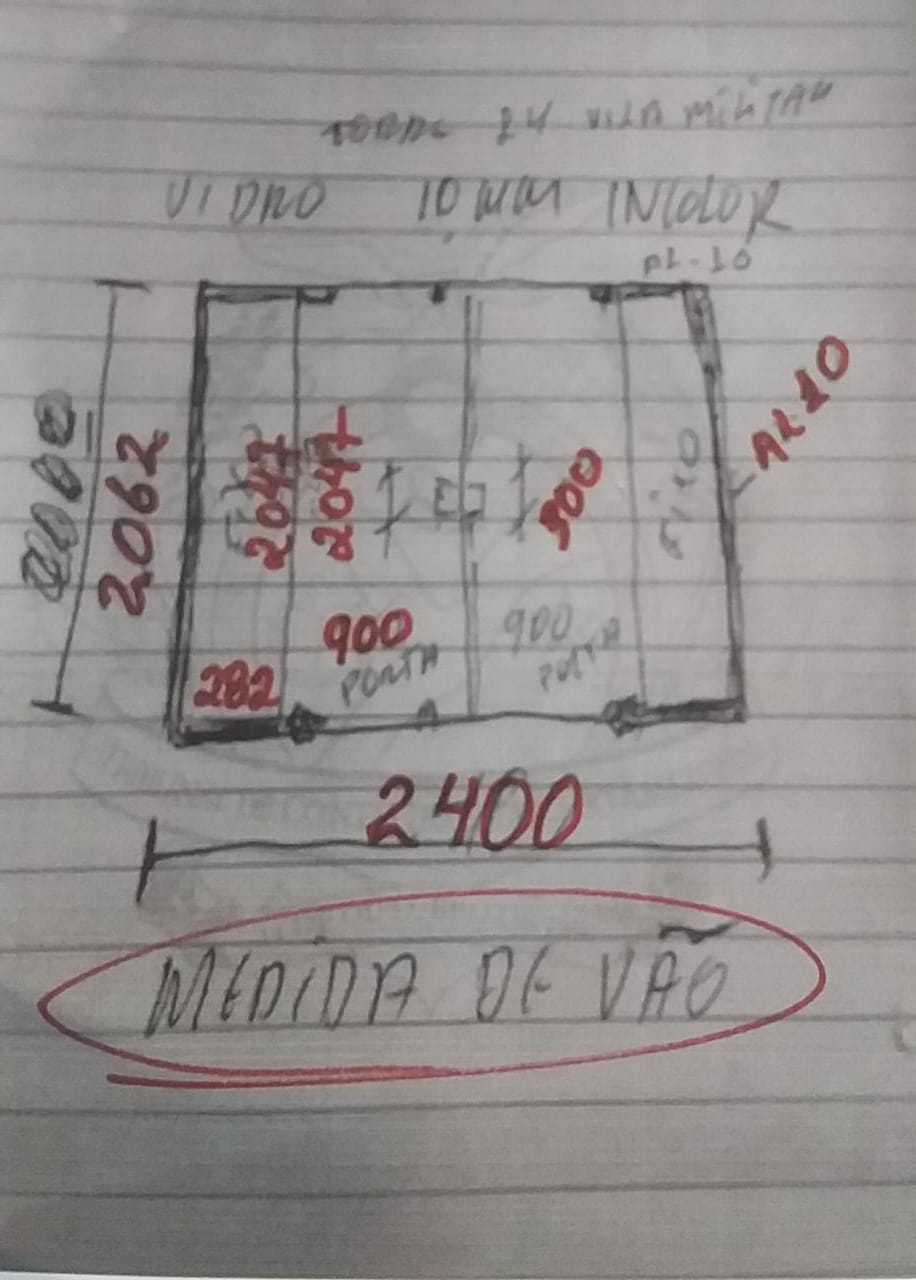 24 VILA MILITAR
VIDRO 10 MM INCOLOR
AL-10
AL 10
2062
2047
2047
300
FIXO
900
PORTA
900
PORTA
282
2400
MEDIDA DE VÃO